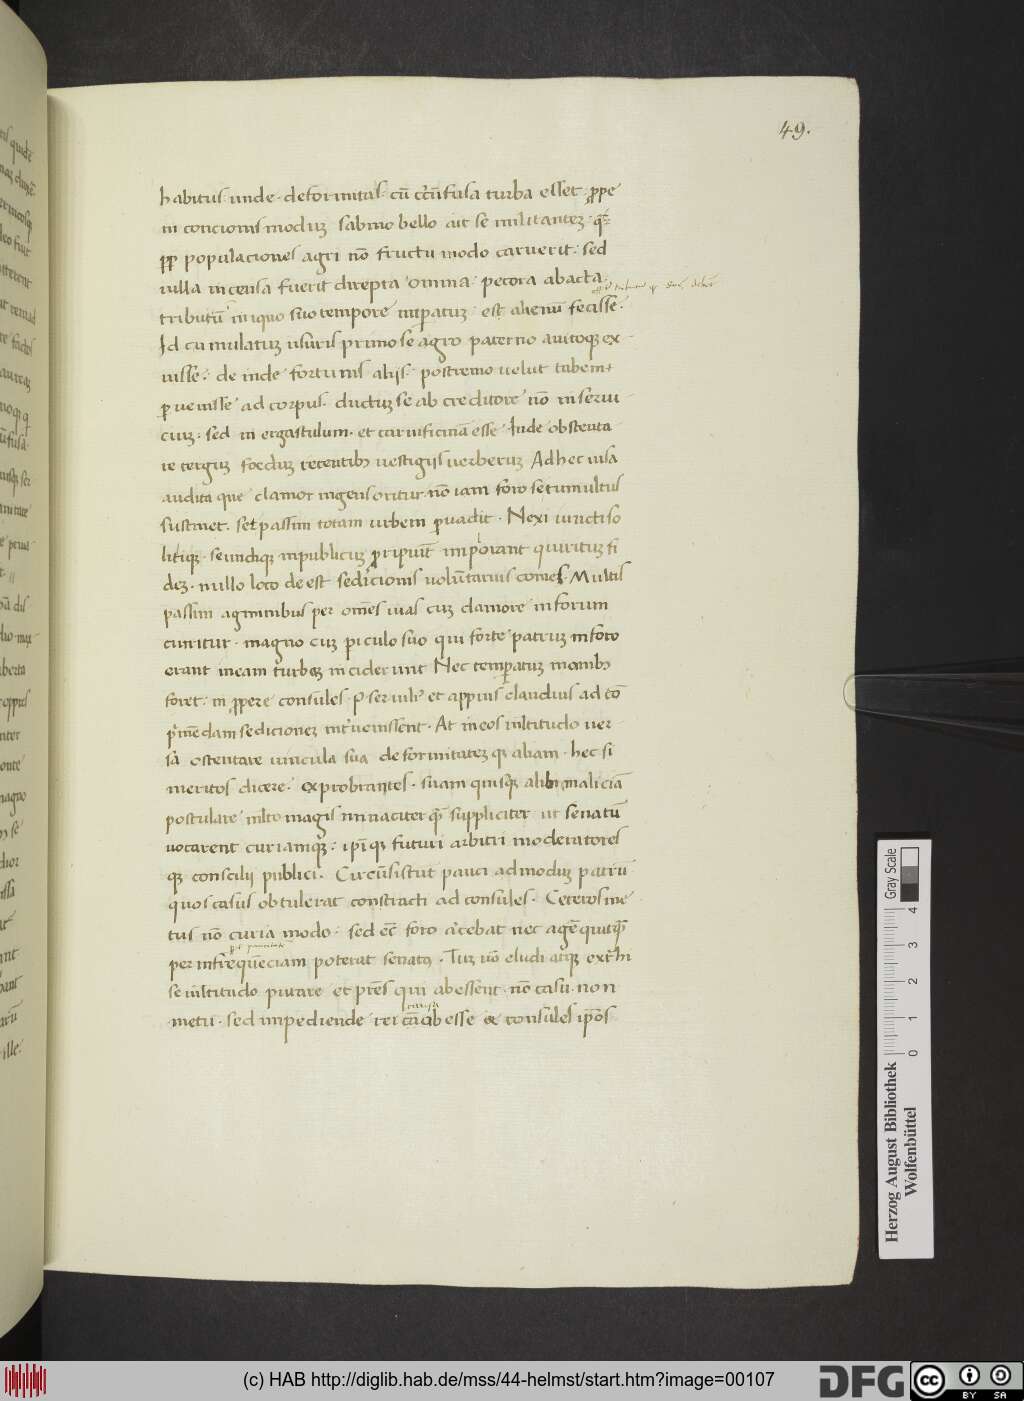 49.
habitus unde deformitas cū c̄cūfusa turba esset ꝓpe
in concionis modū sabino bello ait se militantem q̄
ꝓp populaciones agri nō fructu modo caruerit sed
uilla incensa fuerit direpta omnia pecora abacta
tributū iniquo suo tempore imperatum est alienū fecisse
Id cumulatum usuris primo se agro paterno auitoque ex
uisse de inde fortunis aliis postremo uelut tabem
ꝑuenisse ad corpus ductum se ab creditore nō in serui
cium sed in ergastulum et carnificinā esse Inde obstenta
re tergum foedum recentibus uestigiis uerberum Ad hec uisa
audita que clamor ingens oritur nō iam foro se tumultus
sustinet sed passim totam urbem ꝑuadit Nexi iuncti so
litique se undique in publicum ꝓripuit implorant quiritum fi
dem nullo loco de est sedicionis uolūtarius comes Multis
passim agminibus per omēs uias cum clamore in forum
curritur magno cum piculo suo qui forte patrum in foro
erant in eam turbam inciderunt Nec temperatum manibus
foret in ꝓpere consules P seruilius et appius claudius ad cō
p̄mēdam sedicionem int̄uenissent At in eos mltitudo uer
sā ostentare uincula sua deformitatem que aliam hec si
meritos dicere exprobrantes suam quisque alibi maliciā
postulare mlto magis minaciter quā suppliciter ut senatū
uocarent curiamque ipīque futuri arbitri moderatores
que consilii publici Circūsistūt pauci admodum patrū
quos casus obtulerat constracti ad consules Ceteros me
tus nō curia modo sed ec̄ foro arcebat nec agē quitquā
per infrequēciam poterat senatus Tum uō eludi atque extrahi
se mltitudo putare et prēs qui abessent nō casu non
metu sed impediende rei cāa ab esse & consules ipōs
Gray Scale
0 1 2 3 4
Herzog August Bibliothek
Wolfenbüttel
(c) HAB http://diglib.hab.de/mss/44-helmst/start.htm?image=00107
DFG
cc
BY SA